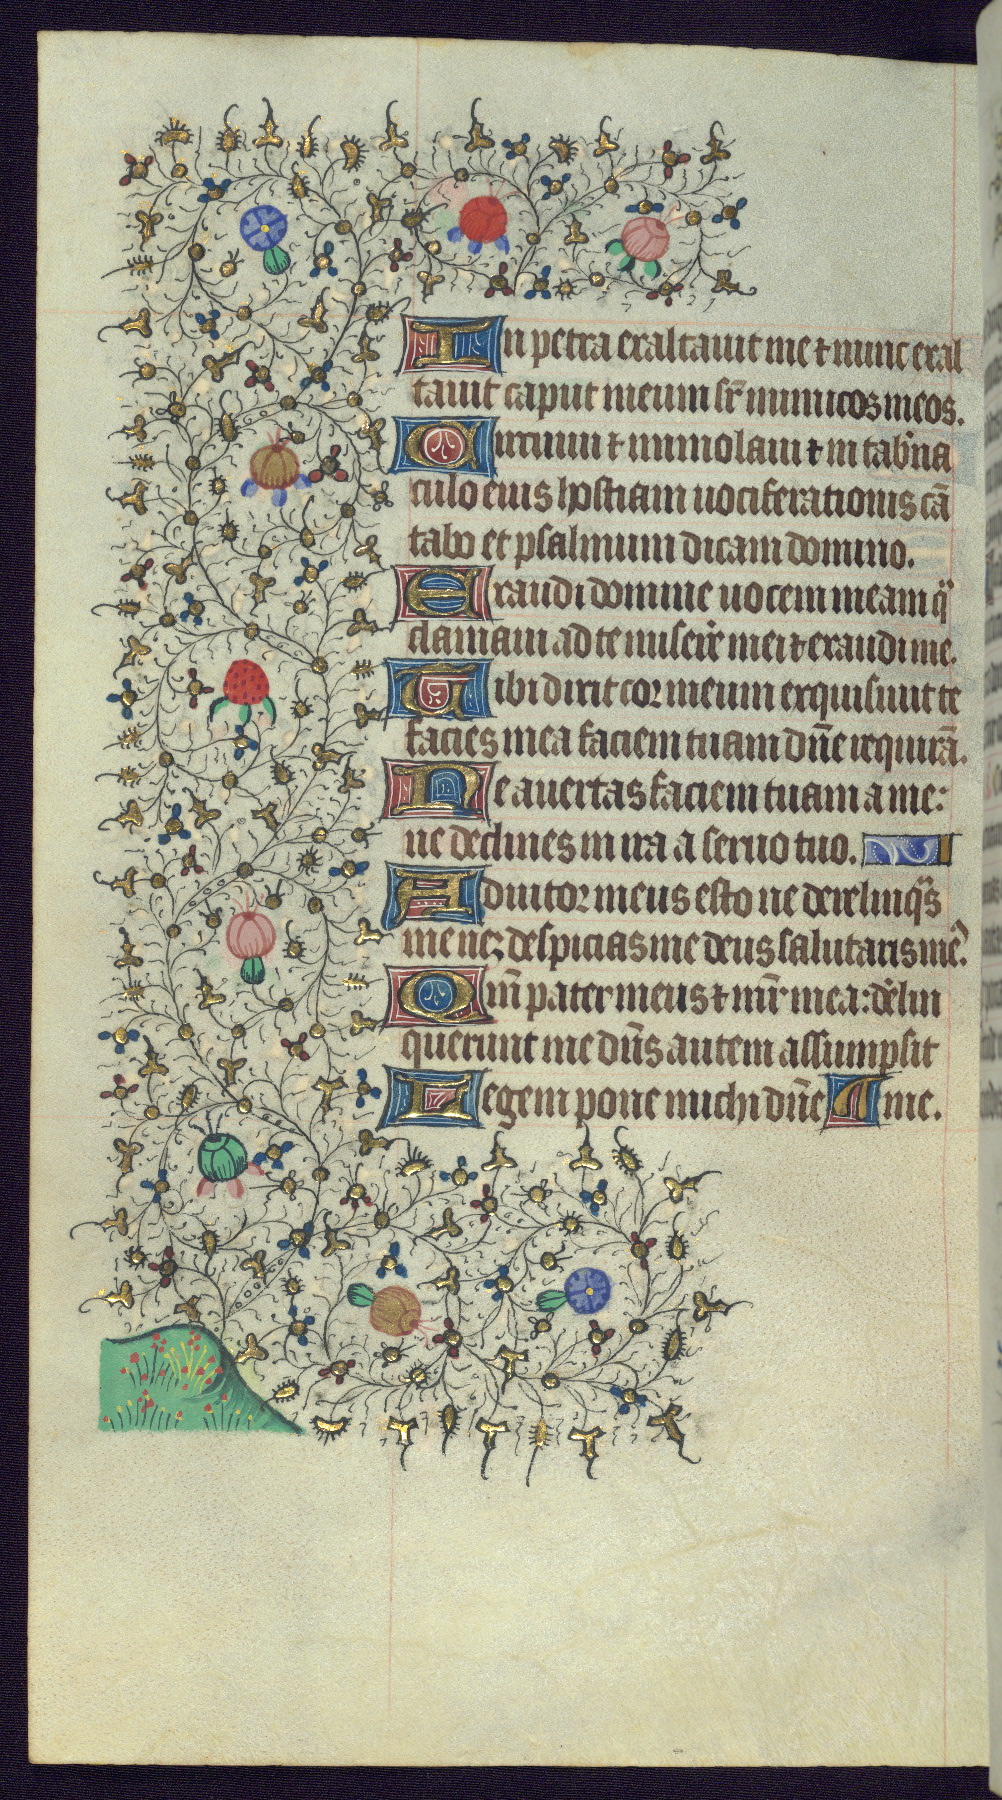 In petra exaltauit me ⁊ nunc exal
tauit caput meum sr̄ inimicos meos.
Circuiui ⁊ immolaui ⁊ in tab̾na
culo eius hostiam uociferationis cā
tabo et psalmum dicam domino.
Exaudi domine uocem meam q̄
clamaui ad te miserēr mei ⁊ exaudi me.
Tibi dixit cor meum exquisiuit te
facies mea faciem tuam dn̄e requirā.
Ne auertas faciem tuam a me:
ne declines in ira a seruo tuo.
Adiutor meus esto ne derelinq̄s
me nez despicias me deus salutaris me᾽.
Qm̄ pater meus ⁊ mr̄ mea: dēlin
querunt me dn̄s autem assumpsit
Legem pone michi dn̄e me.